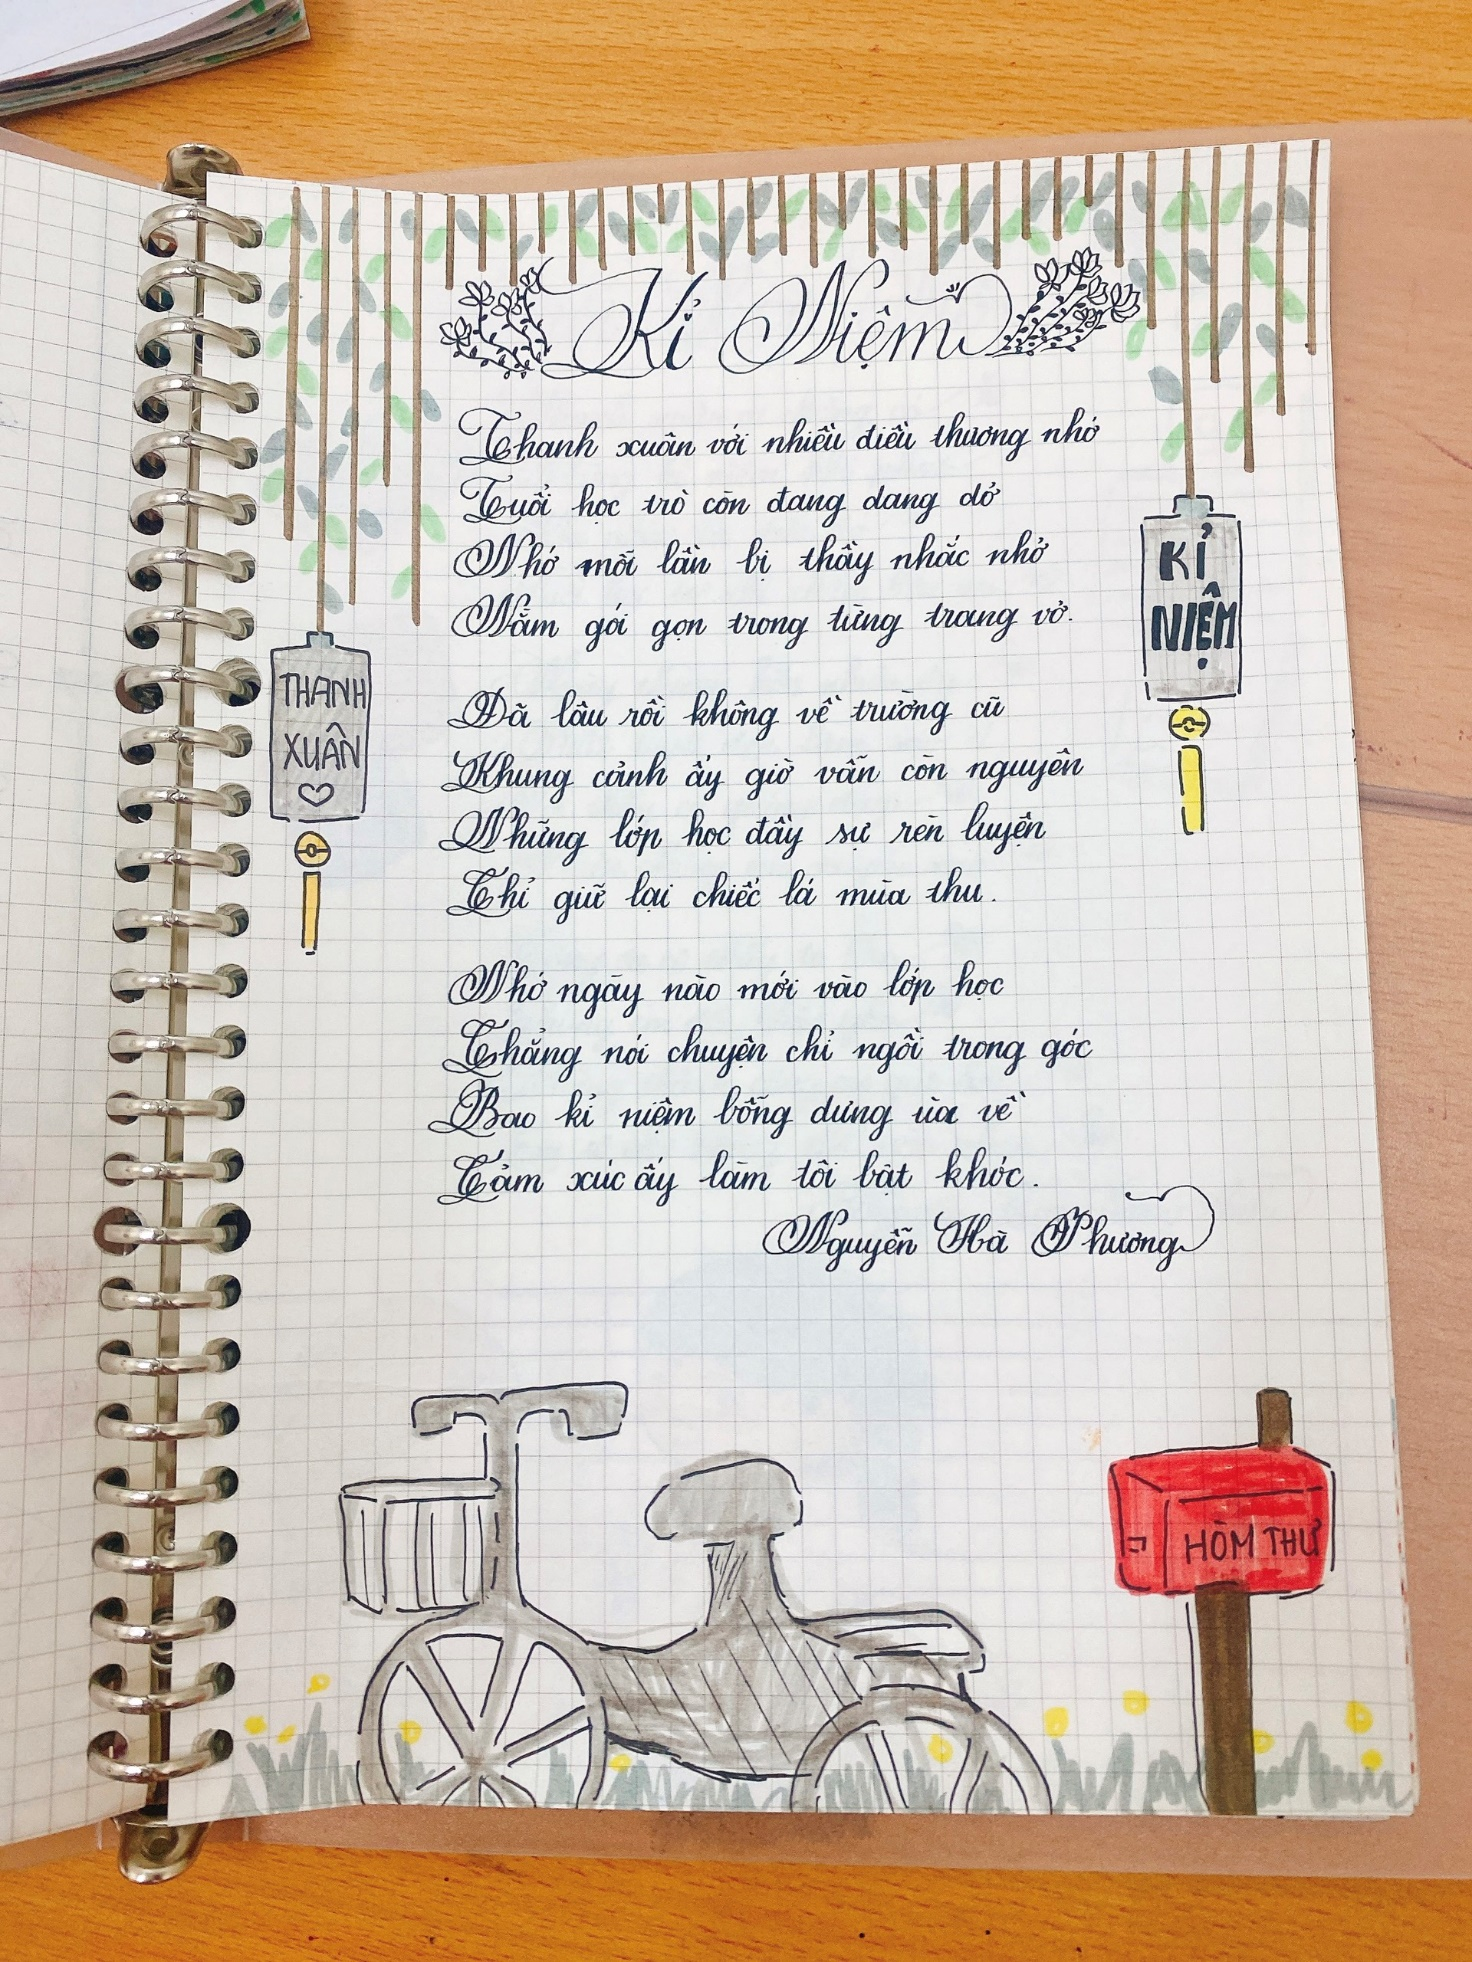 Kỉ Niệm
Thanh xuân với nhiều điều thương nhớ
Tuổi học trò còn đang dang dở
Nhớ mỗi lần bị thầy nhắc nhở
Nằm gói gọn trong từng trang vở.
Đã lâu rồi không về trường cũ
Khung cảnh ấy giờ vẫn còn nguyên
Những lớp học đầy sự rèn luyện
Chỉ giữ lại chiếc lá mùa thu.
Nhớ ngày nào mới vào lớp học
Chẳng nói chuyện chỉ ngồi trong góc
Bao kỉ niệm bỗng dưng ùa về
Cảm xúc ấy làm tôi bật khóc.
Nguyễn Hà Phương
THANH
XUÂN
KỈ
NIỆM
HÒM THƯ